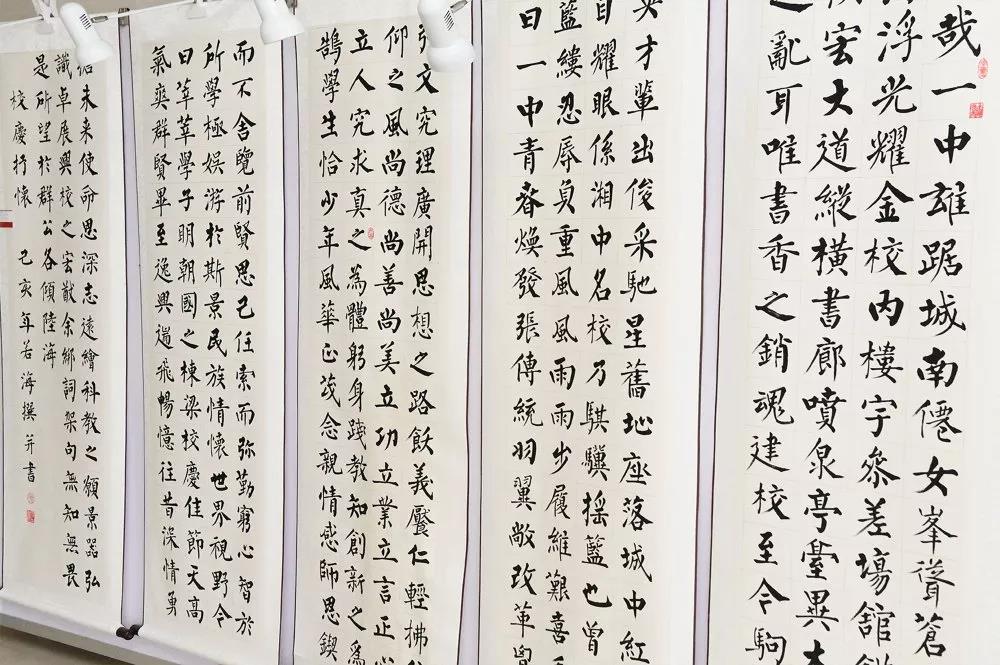 哉一中雄踞城南僊女峯聳蒼
浮光耀金校內樓宇參差場館
宏大道縱橫書廊噴泉亭臺異
亂耳唯書香之銷魂建校至今駒
才輩出俊采馳星舊址座落城中紅
目耀眼係湘中名校乃騏驥搖籃也曾
藍縷忍辱負重風風雨雨步履維艱喜
曰一中青春煥發張傳統羽翼敞改革
文究理廣開思想之路飫義饜仁輕拂
仰之風尚德尚善尚美立功立業立言正心
立人究求真之為體躬身踐教知創新之為
鵠學生恰少年風華正茂念親情感師恩鍥
而不舍覽前賢思己任索而弥勤窮心智於
所學極娛游於斯景民族情懷世界視野今
日莘莘學子明朝國之棟梁校慶佳節天高
氣爽群賢畢至逸興遄飛暢憶往昔深情勇
未来使命思深志遠繪科教之願景器弘
識卓展興校之宏猷余鄉詞架句無知無畏
是所望於群公各傾陸海
校慶抒懷 己亥年若海撰并書